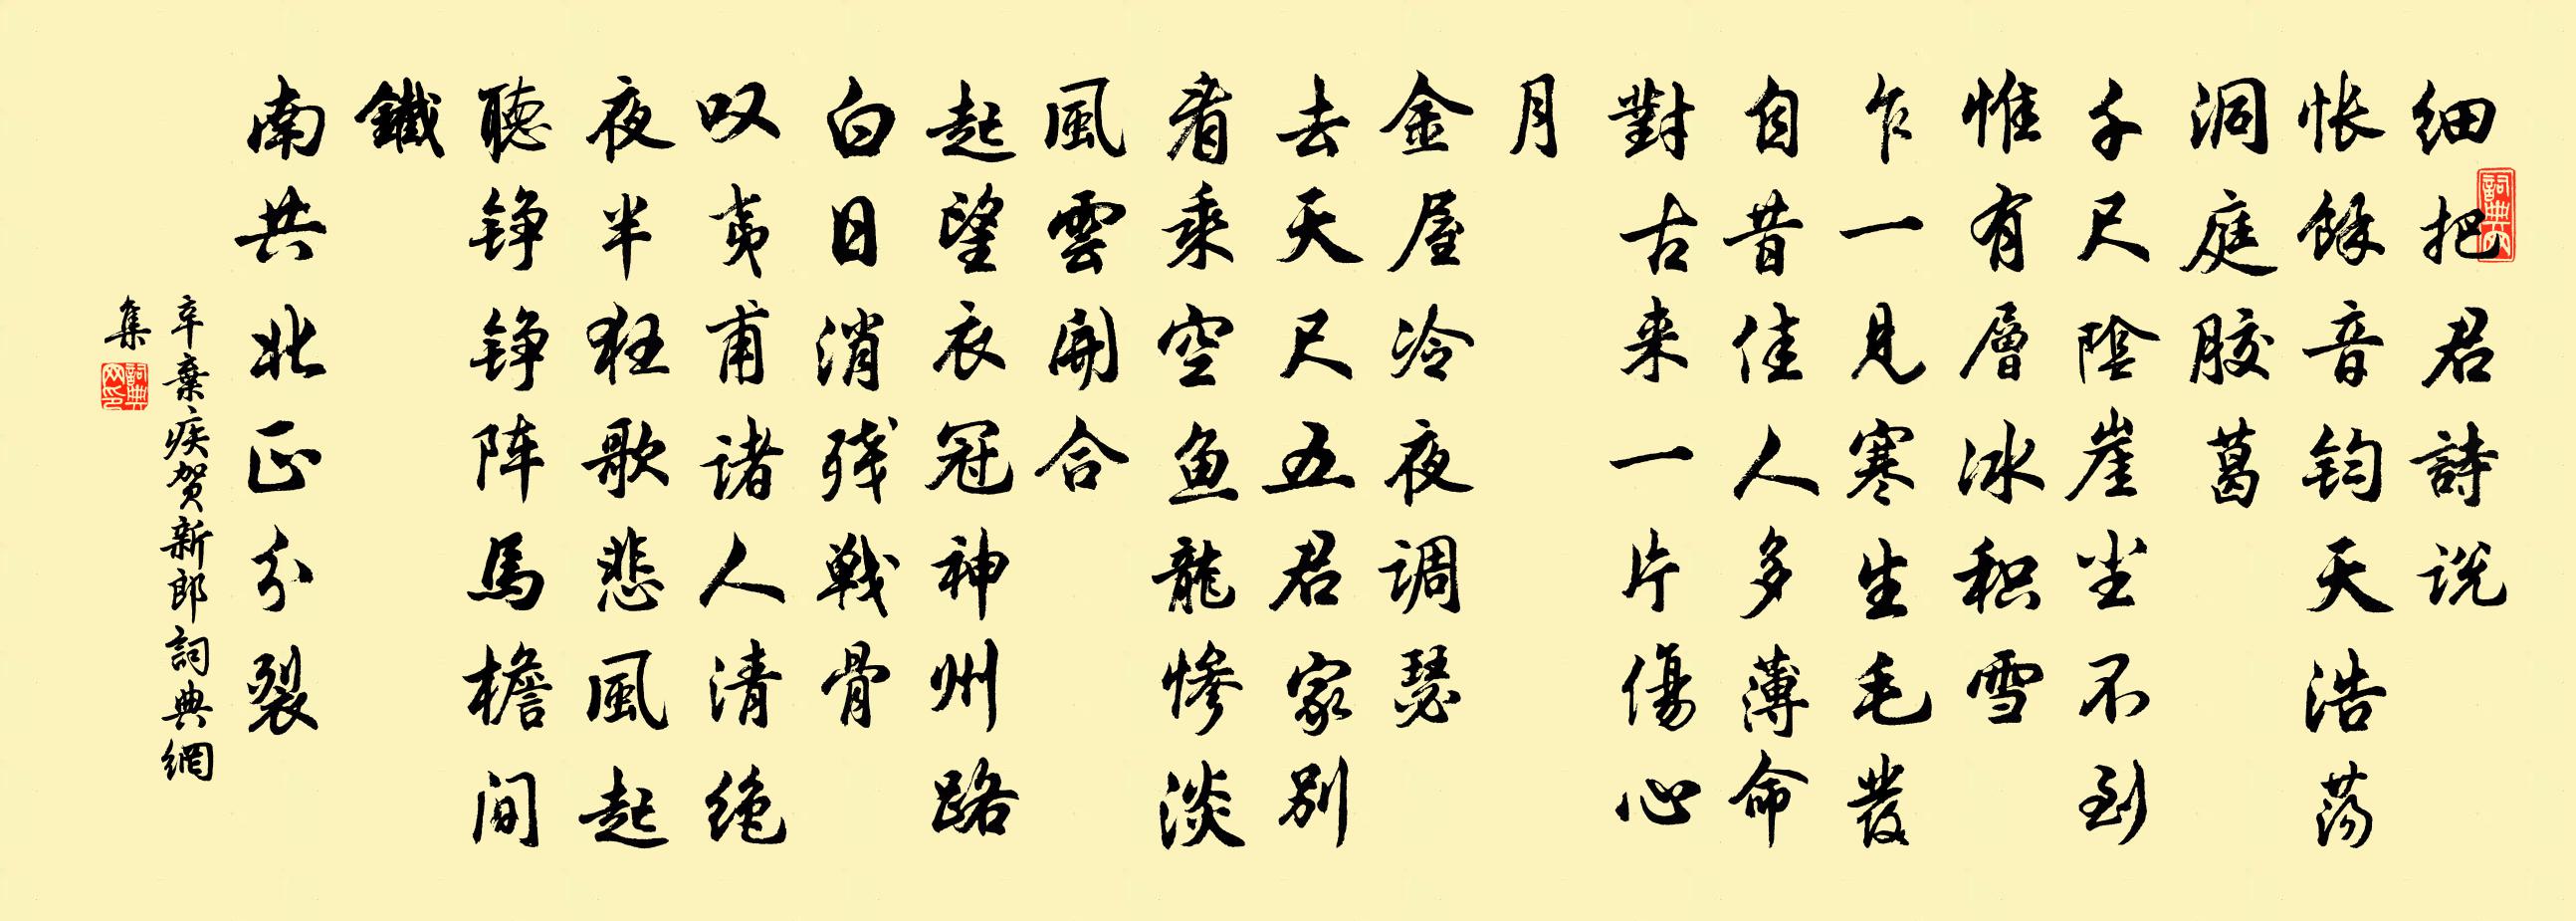 细把君詩说
怅餘音钧天浩荡
洞庭胶葛
千尺陰崖尘不到
惟有層冰积雪
乍一見寒生毛發
自昔佳人多薄命
對古来一片傷心
月
金屋冷夜调瑟
去天尺五君家别
看乘空鱼龍惨淡
風雲開合
起望衣冠神州路
白日消残戰骨
叹夷甫诸人清绝
夜半狂歌悲風起
聽铮铮阵馬檐间
鐵
南共北正分裂
辛棄疾贺新郎詞典網
集
詞典网印